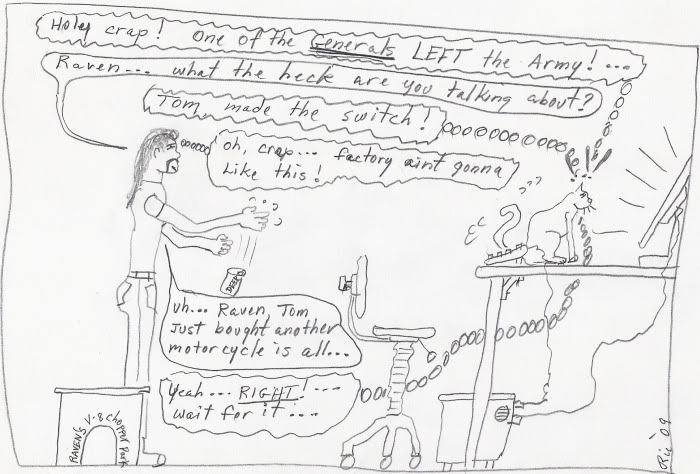 Holey crap! One of the Generals LEFT the Army!...
Raven... what the heck are you talking about?
Tom, made the switch!
oh, crap... factory aint gonna
Like this!
BEER
uh... Raven, Tom
Just bought another
motorcycle is all...
Yeah... RIGHT!...
wait for it...
RAVENS V-8 Chopper Park
Ric '09